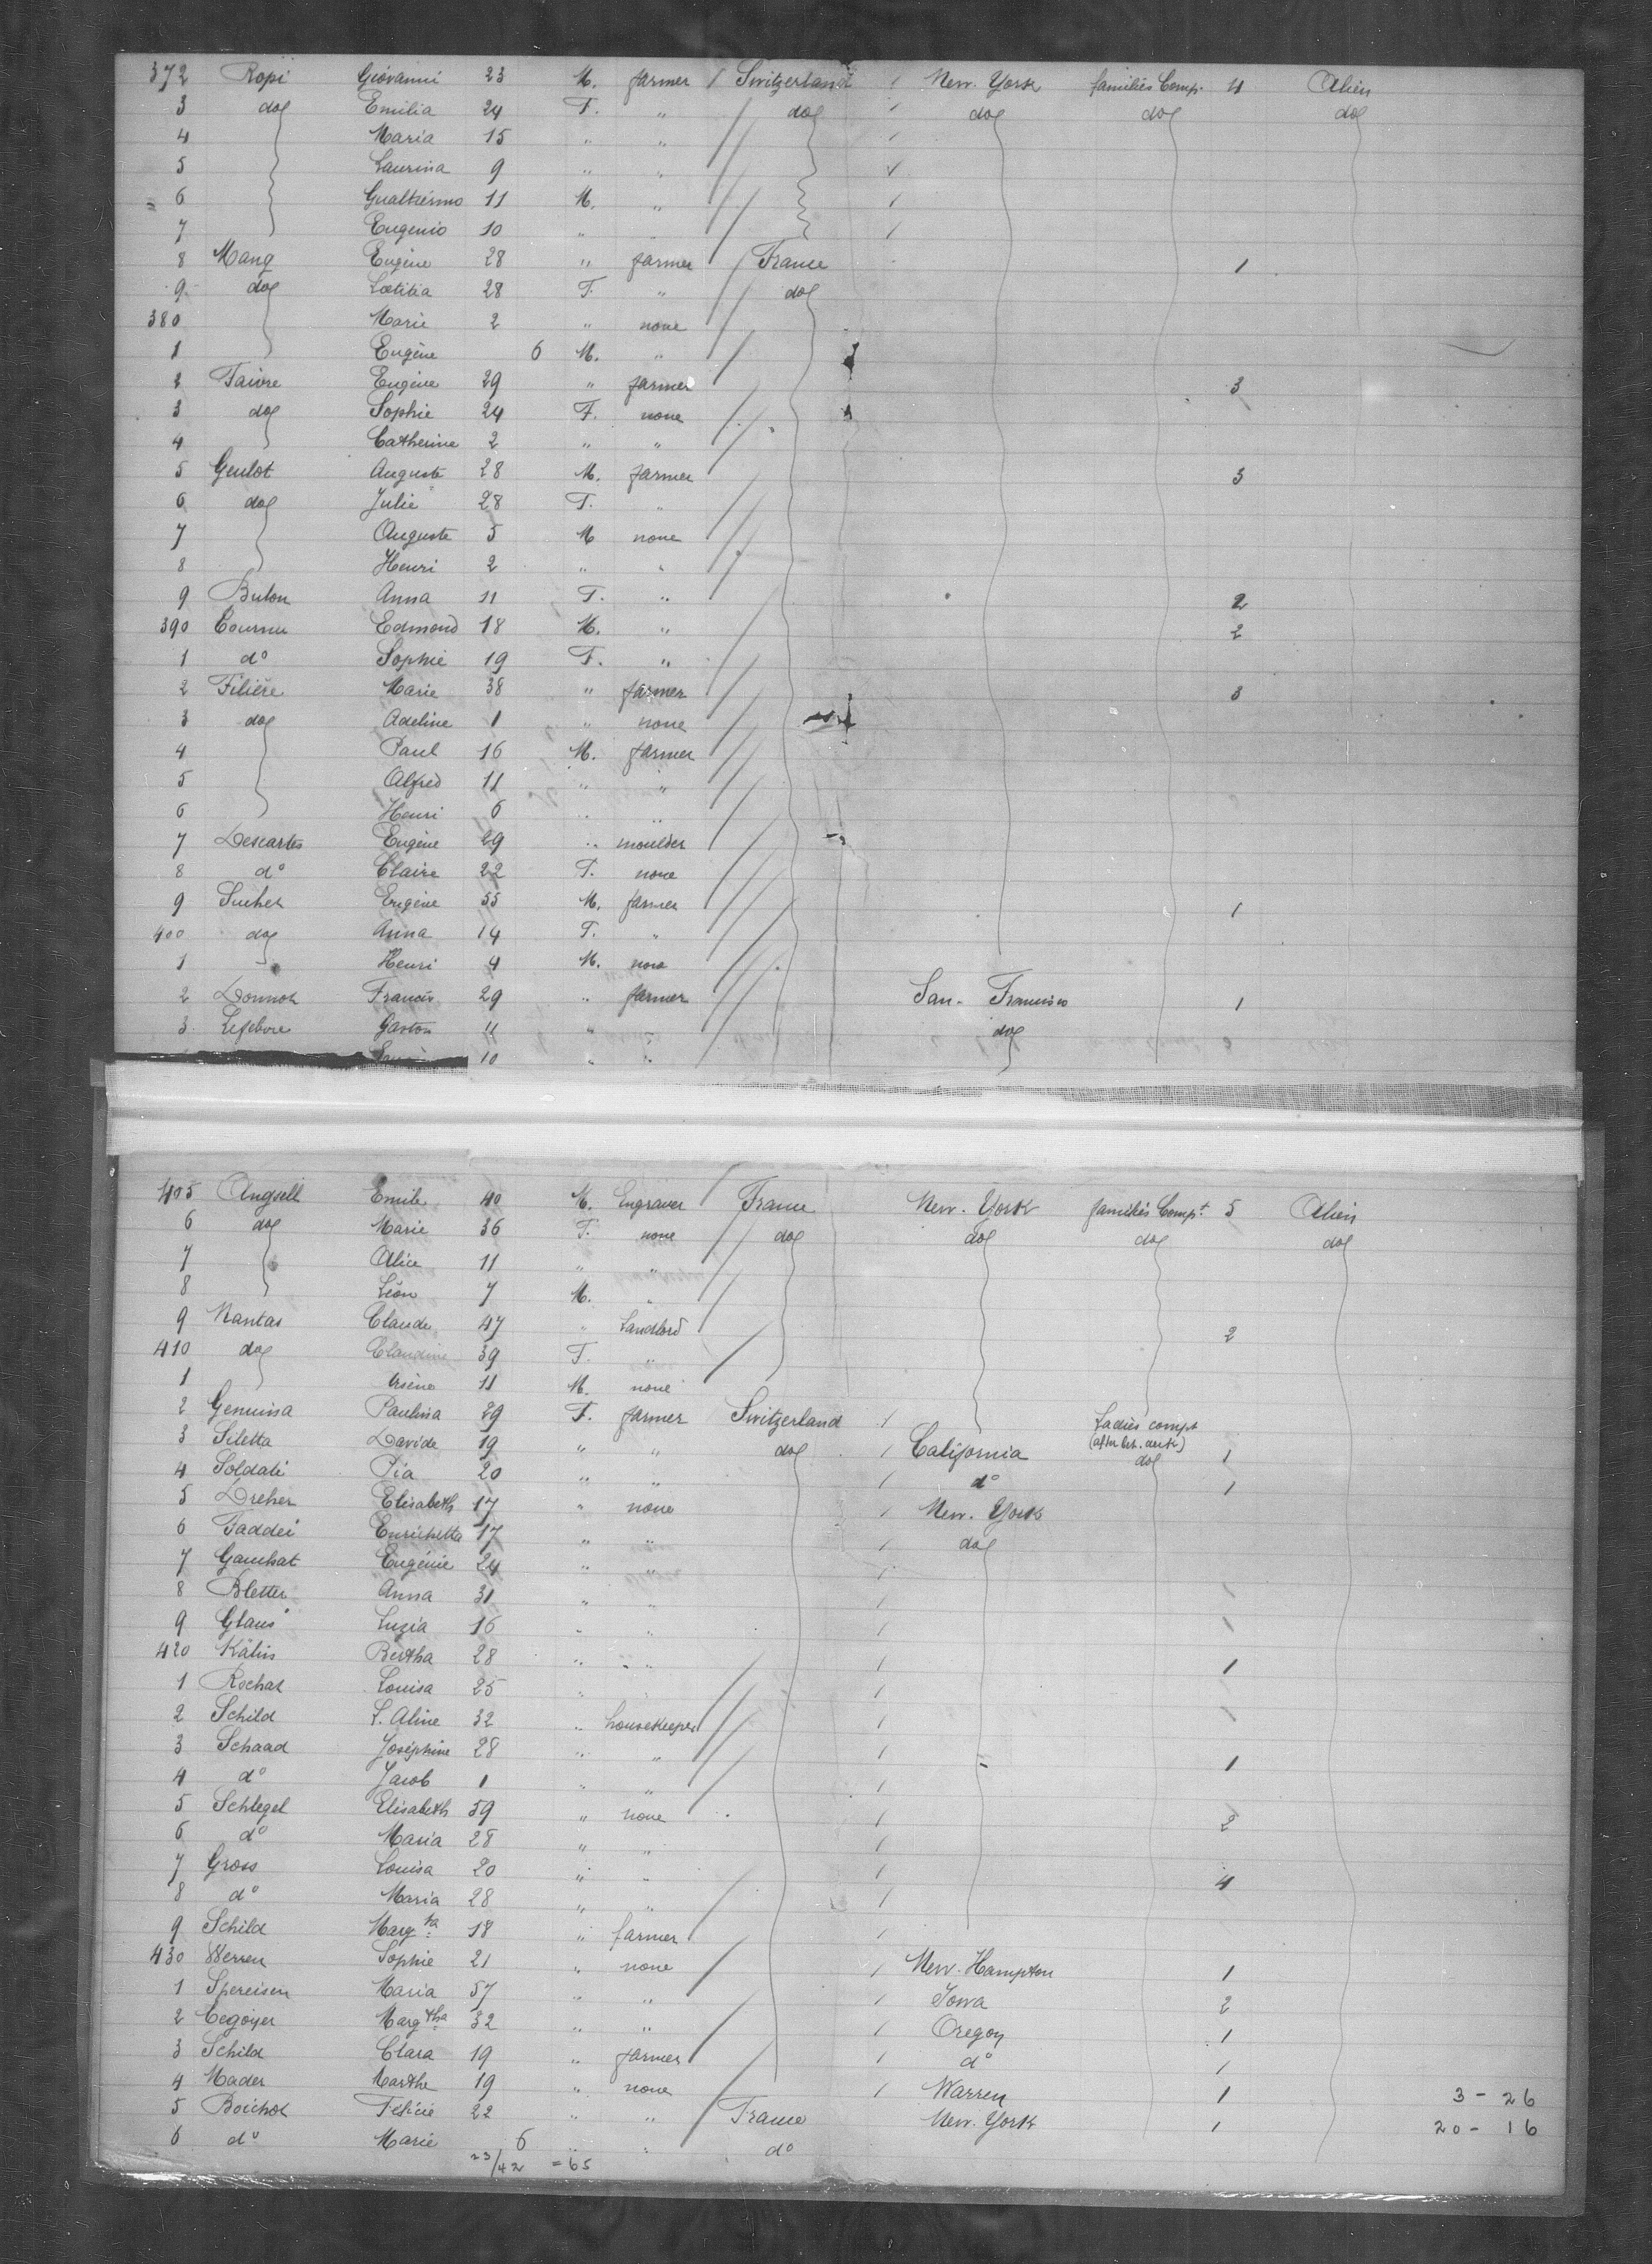 372 Ropi Giovanni 23 M. farmer Switzerland New-York families Comp. 4 Alien
3 do Emilia 24 F. " do do do do
4 Maria 15 " "
5 Laurina 9 " "
6 Gualtiermo 11 M. "
7 Eugenio 10 " "
8 Mang Eugène 28 " farmer France 1
9 do Lœtitia 28 F. " do
380 Marie 2 " none
1 Eugène 6 M. "
2 Faivre Eugène 29 " farmer 3
3 do Sophie 24 F. none
4 Catherine 2 " "
5 Genlot Auguste 28 M. farmer 3
6 do Julie 28 F. "
7 Auguste 5 M none
8 Henri 2 " "
9 Bulon Anna 11 F. " 2
390 Cournu Edmond 18 M. " 2
1 do Sophie 19 F. "
2 Filière Marie 38 " farmer 3
3 do Adeline 1 " none
4 Paul 16 M. farmer
5 Alfred 11 " "
6 Henri 6 " "
7 Descartes Eugène 29 " moulder
8 do Claire 22 F. none
9 Suchet Eugène 55 M. farmer 1
400 do Anna 14 F. "
1 Henri 4 M. none
2 Donnot Francis 29 " farmer San-Francisco 1
3 Lefebvre Gaston 11 " " do
10 " "
405 Angsell Emile 40 M. Engraver France New-York families Compt 5 Alien
6 do Marie 36 F. none do do do do
7 Alice 11 " "
8 Léon 7 M. "
9 Nantas Claude 47 " Landlord 2
410 do Claudine 39 F. "
1 Arsène 11 M. none
2 Genuina Paulina 29 F. farmer Switzerland Ladies compt
3 Siletta Davide 19 " " do California (after let. deck) 1
4 Soldati Pia 20 " " do do 1
5 Dreher Elisabeth 17 " none New-York
6 Taddei Enrichetta 17 " " do
7 Gauchat Eugénie 24 " "
8 Bletter Anna 31 " "
9 Glaus Luzia 16 " "
420 Kälin Bertha 28 " " 1
1 Rochat Louisa 25 "
2 Schild L. Aline 32 " housekeeper
3 Schaad Joséphine 28 " " 1
4 do Jacob 1 " "
5 Schlegel Elisabeth 59 " none 2
6 do Maria 28 " "
7 Gross Louisa 20 " " 4
8 do Maria 28 " "
9 Schild Marg.ta 18 " farmer
430 Werren Sophie 21 " none New-Hampton 1
1 Spereisen Maria 57 " " Iowa 2
2 Cegoyer Marg.tha 32 " " Oregon 1
3 Schild Clara 19 " farmer do 1
4 Mader Marthe 19 " none Warren 1 3-26
5 Boichot Félicie 22 " " France New-York 1 20-16
6 do Marie 6 " " do
23/42 = 65